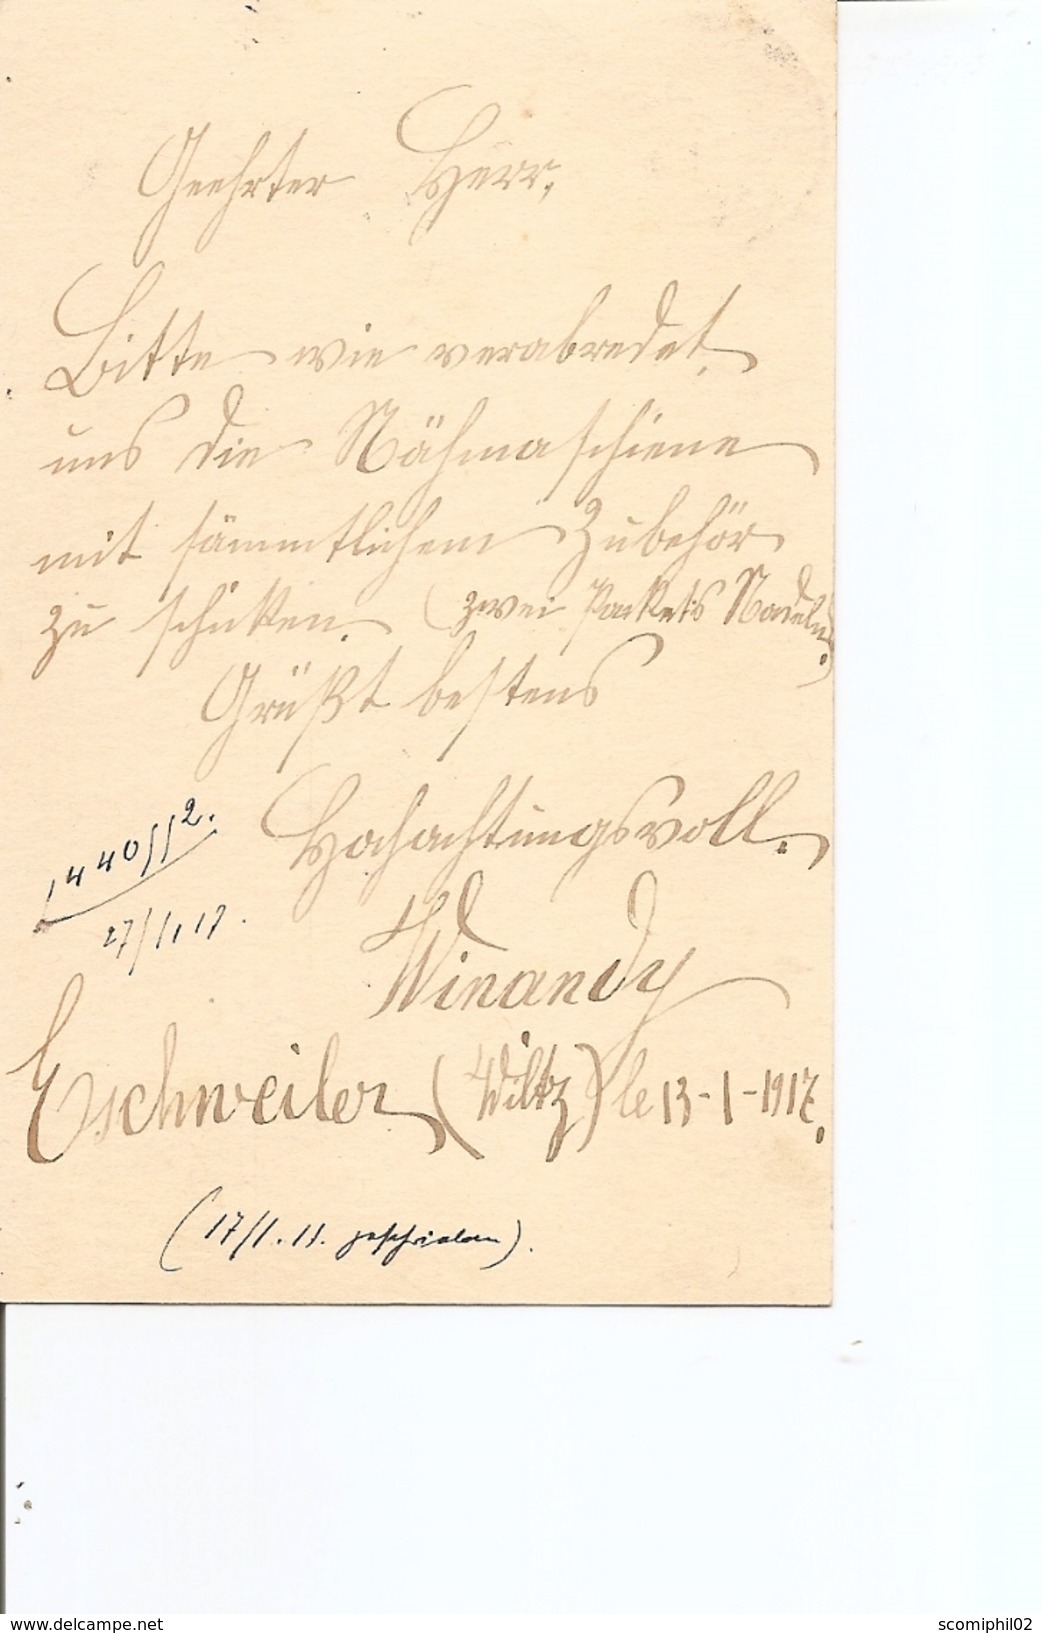 Geehrter Herr,
Bitte wie verabredet,
uns die Nähmaschiene
mit sämmtlichem Zubehör
zu schicken. (zwei Packets Nadeln.)
Grüßt bestens
Hochachtungsvoll.
27/1.17.
Winandy
Eschweiler (Wiltz) le 13-1-1917.
(17/1.11. geschrieben).
delcampe.net
scomiphil02